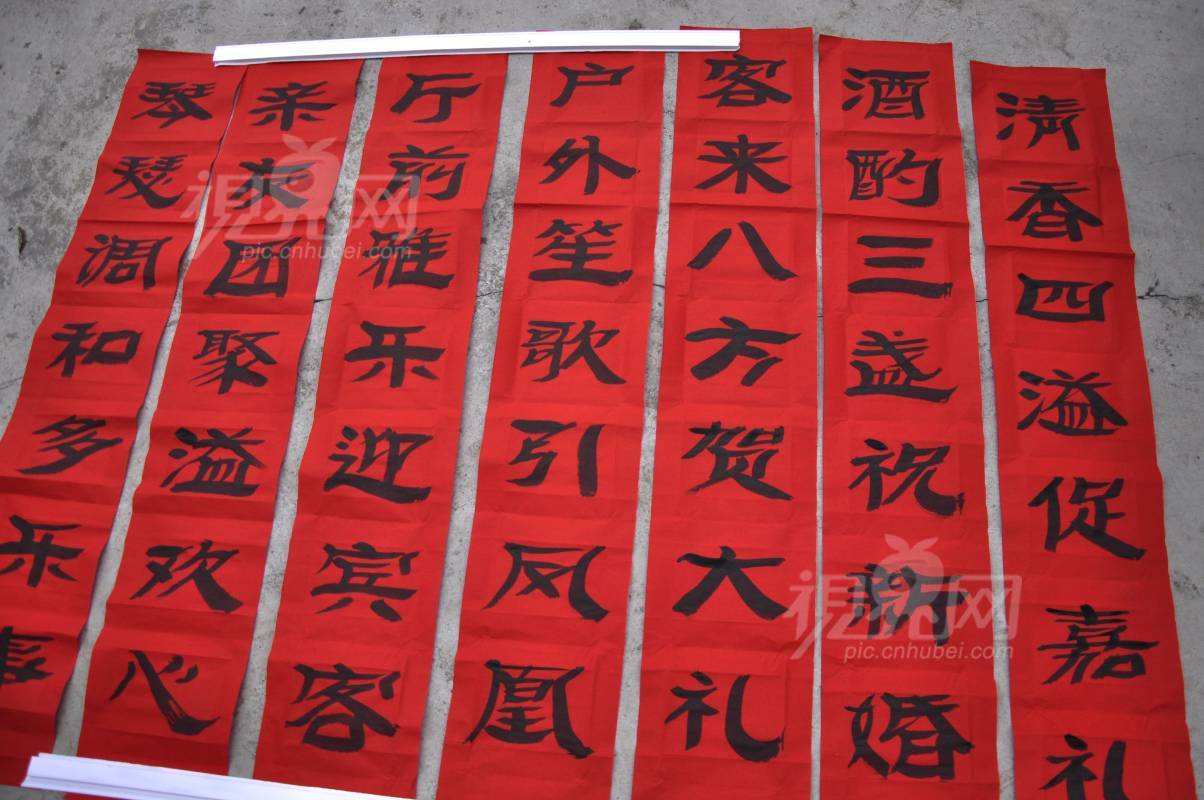 琴瑟调和多乐事
亲友团聚溢欢心
厅前雅乐迎宾客
户外笙歌引凤凰
客来八方贺大礼
酒酌三盏祝新婚
清香四溢促嘉礼
視界网
pic.cnhubei.com
視界网
pic.cnhubei.com